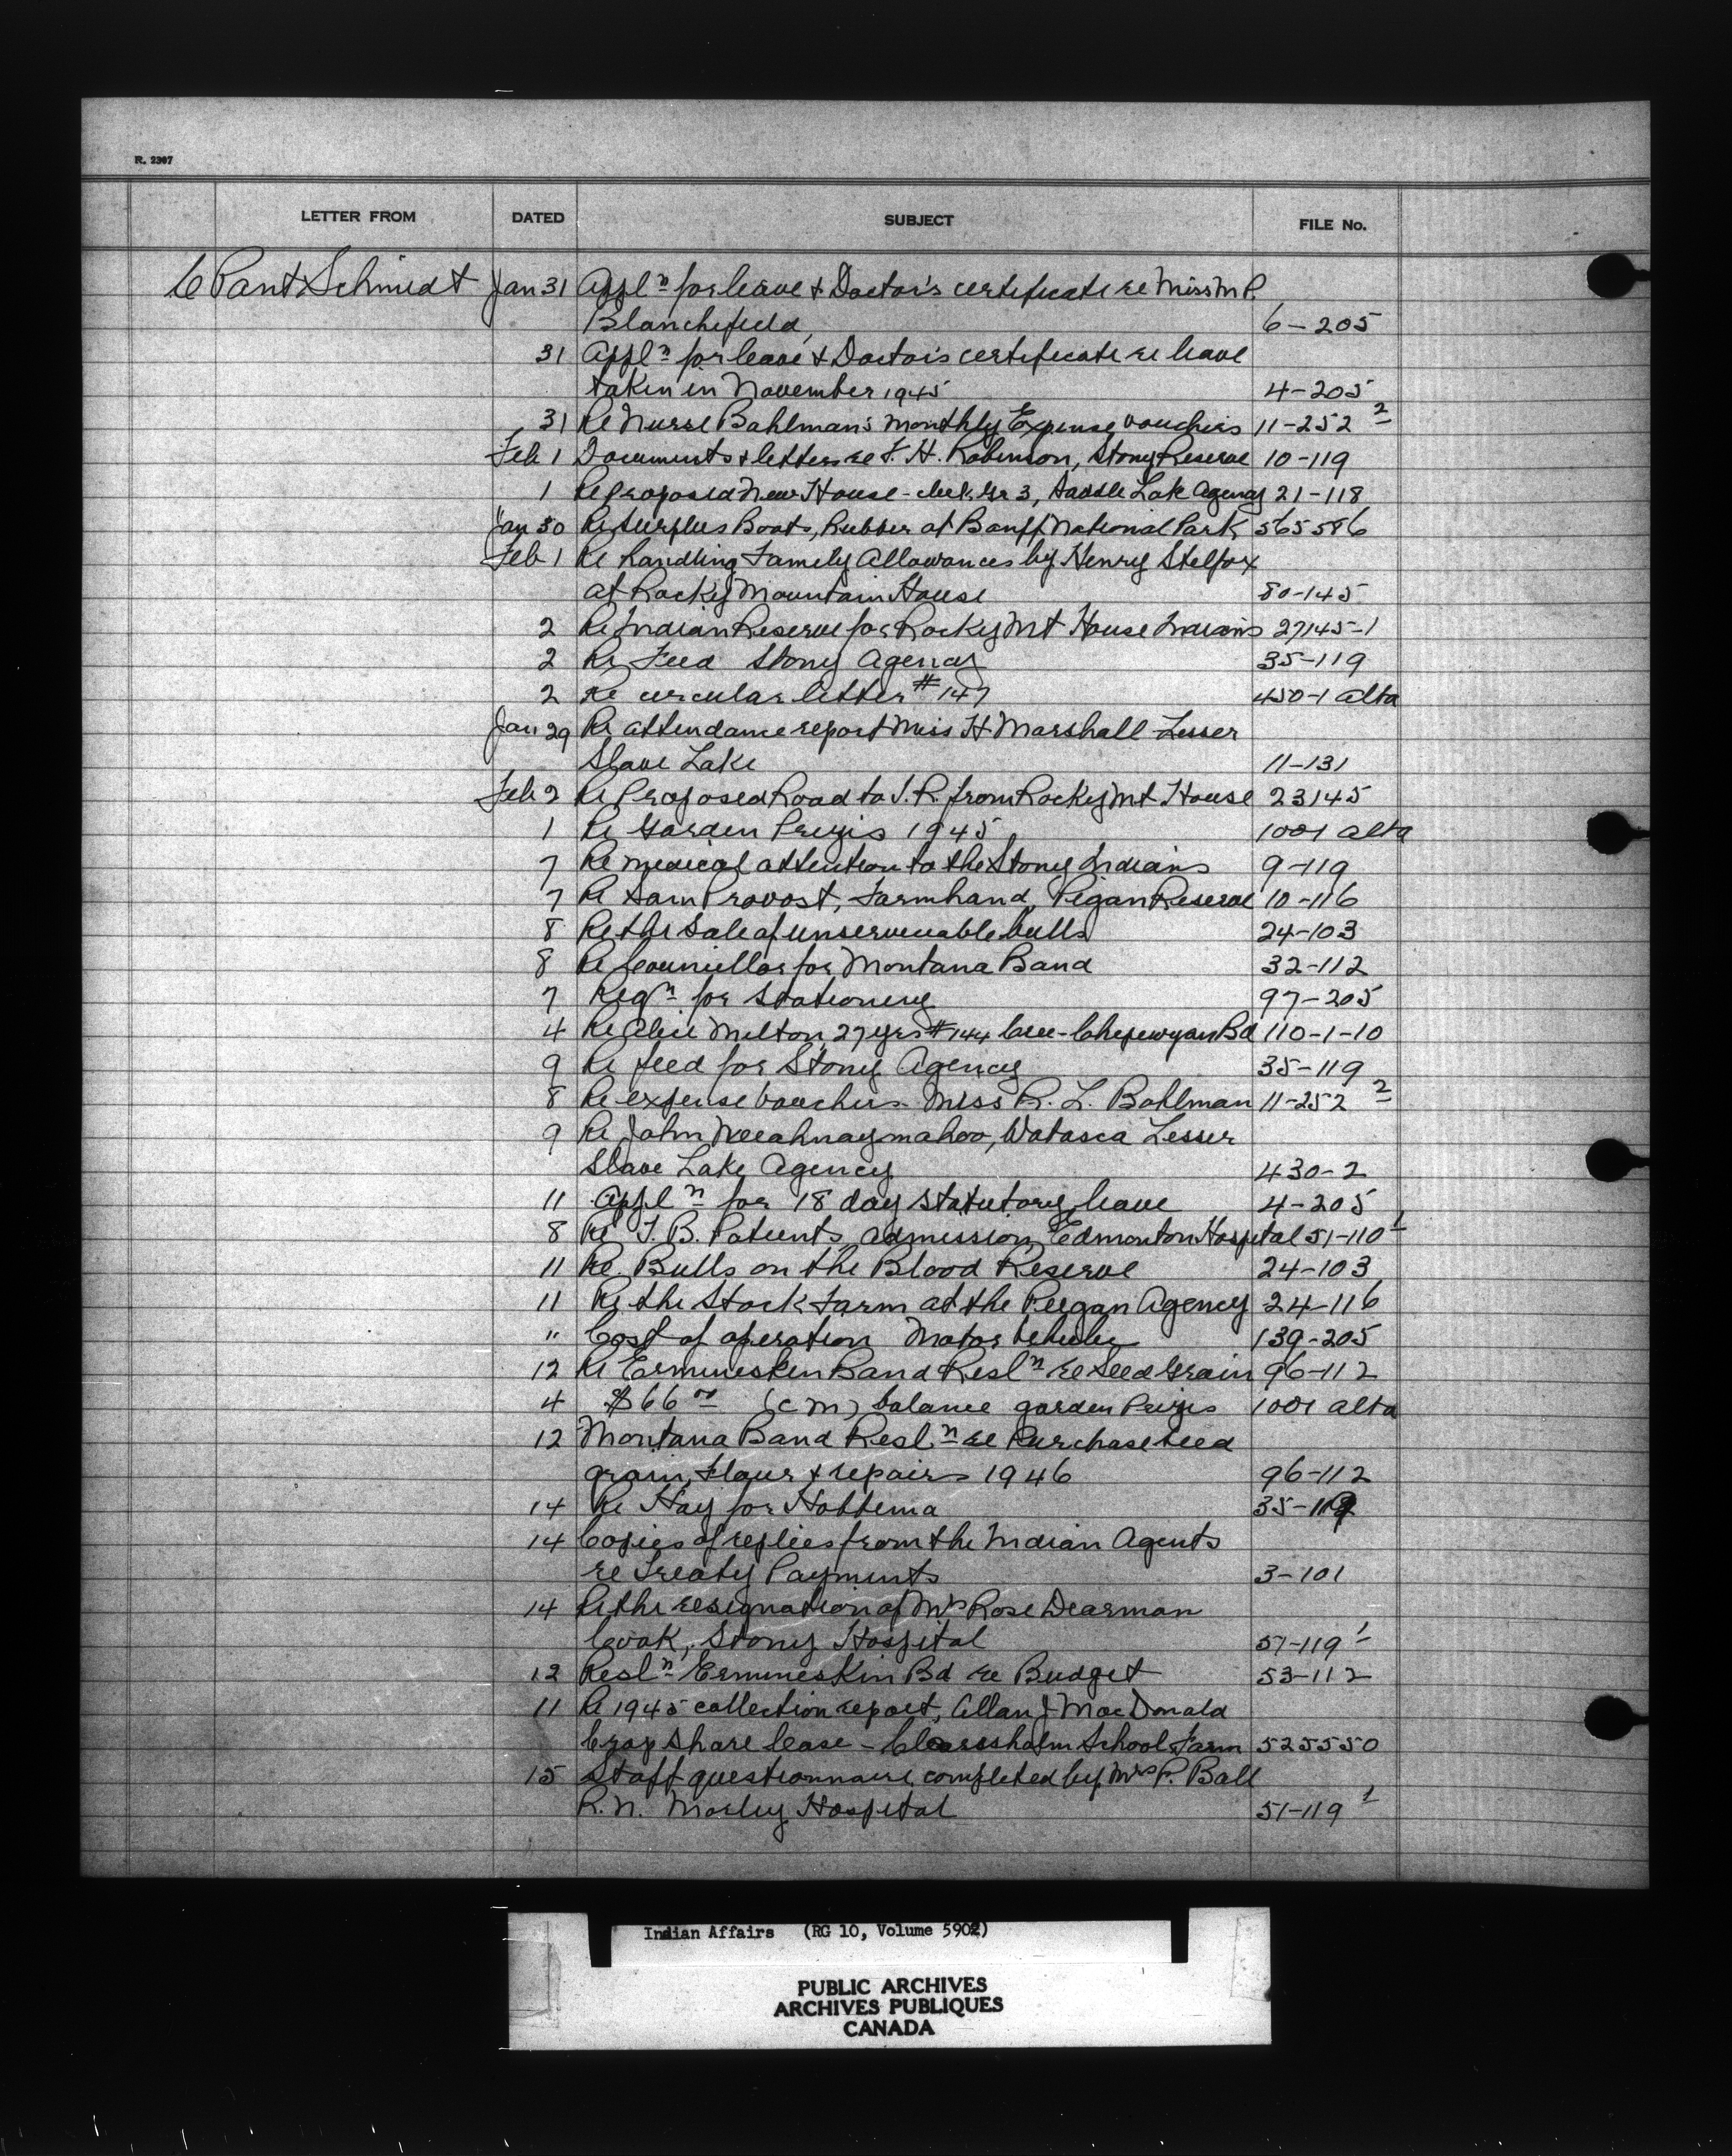 R. 2307
LETTER FROM DATED SUBJECT FILE No.
C Pant Schmidt Jan 31 Appln for leave & Doctor's certificate re Miss M P.
Blanchfield, 6-205
31 Appln for leave & Doctor's certificate re leave
taken in November 1945 4-205
31 Re Nurse Bahlman's monthly Expense vouchers 11-252 2
Feb 1 Documents & letters re F. H. Robinson, Stony Reserve 10-119
1 Re proposed New House - Gr 3, Saddle Lake Agency 21-118
Jan 30 Re Surplus Boats, Rubber at Banff National Park 565586
Feb 1 Re handling Family Allowances by Henry Stelfox
at Rocky Mountain House 80-145
2 Re Indian Reserve for Rocky Mt House Indians 27145-1
2 Re Feed Stony Agency 35-119
2 Re circular letter #147 450-1 alta
Jan 29 Re attendance report Miss H Marshall Lesser
Slave Lake 11-131
Feb 2 Re Proposed Road to I.R. from Rocky Mt House 23145
1 Re Garden Prizes 1945 1001 alta
7 Re medical attention to the Stony Indians 9-119
7 Re Sam Provost, Farmhand, Pigan Reserve 10-116
8 Re the Sale of unserviceable bulls 24-103
8 Re Councillor for Montana Band 32-112
7 Reqn for Stationery 97-205
4 Re Milton, 27 yrs #144 Cree-Chepewyan Bd 110-1-10
9 Re feed for Stony Agency 35-119
8 Re expense vouchers Miss R. L. Bahlman 11-252 2
9 Re John Neeahnaymahoo, Watasca Lesser
Slave Lake Agency 430-2
11 Appln for 18 day statutory leave 4-205
8 Re T. B. Patients admission, Edmonton Hospital 51-110 1
11 Re. Bulls on the Blood Reserve 24-103
11 Re the Stock Farm at the Peigan Agency 24-116
" Cost of operation Motor Vehicles 139-205
12 Re Ermineskin Band Resln re Seed Grain 96-112
4 $66 00 (c m) balance garden Prizes 1001 alta
12 Montana Band Resln re Purchase seed
grain, Flour & repairs 1946 96-112
14 Re Hay for Hobbema 35-112
14 Copies of replies from the Indian Agents
re Treaty Payments 3-101
14 Re the resignation of Mrs Rose Dearman
Cook, Stony Hospital 51-119 1
12 Resln Ermineskin Bd re Budget 53-112
11 Re 1945 collection report, Allan J MacDonald
Crop Share lease - Claresholm School Farm 525550
15 Staff questionnaire completed by Mrs P. Ball
R.N. Morley Hospital 51-119 1
Indian Affairs (RG 10, Volume 5902)
PUBLIC ARCHIVES
ARCHIVES PUBLIQUES
CANADA